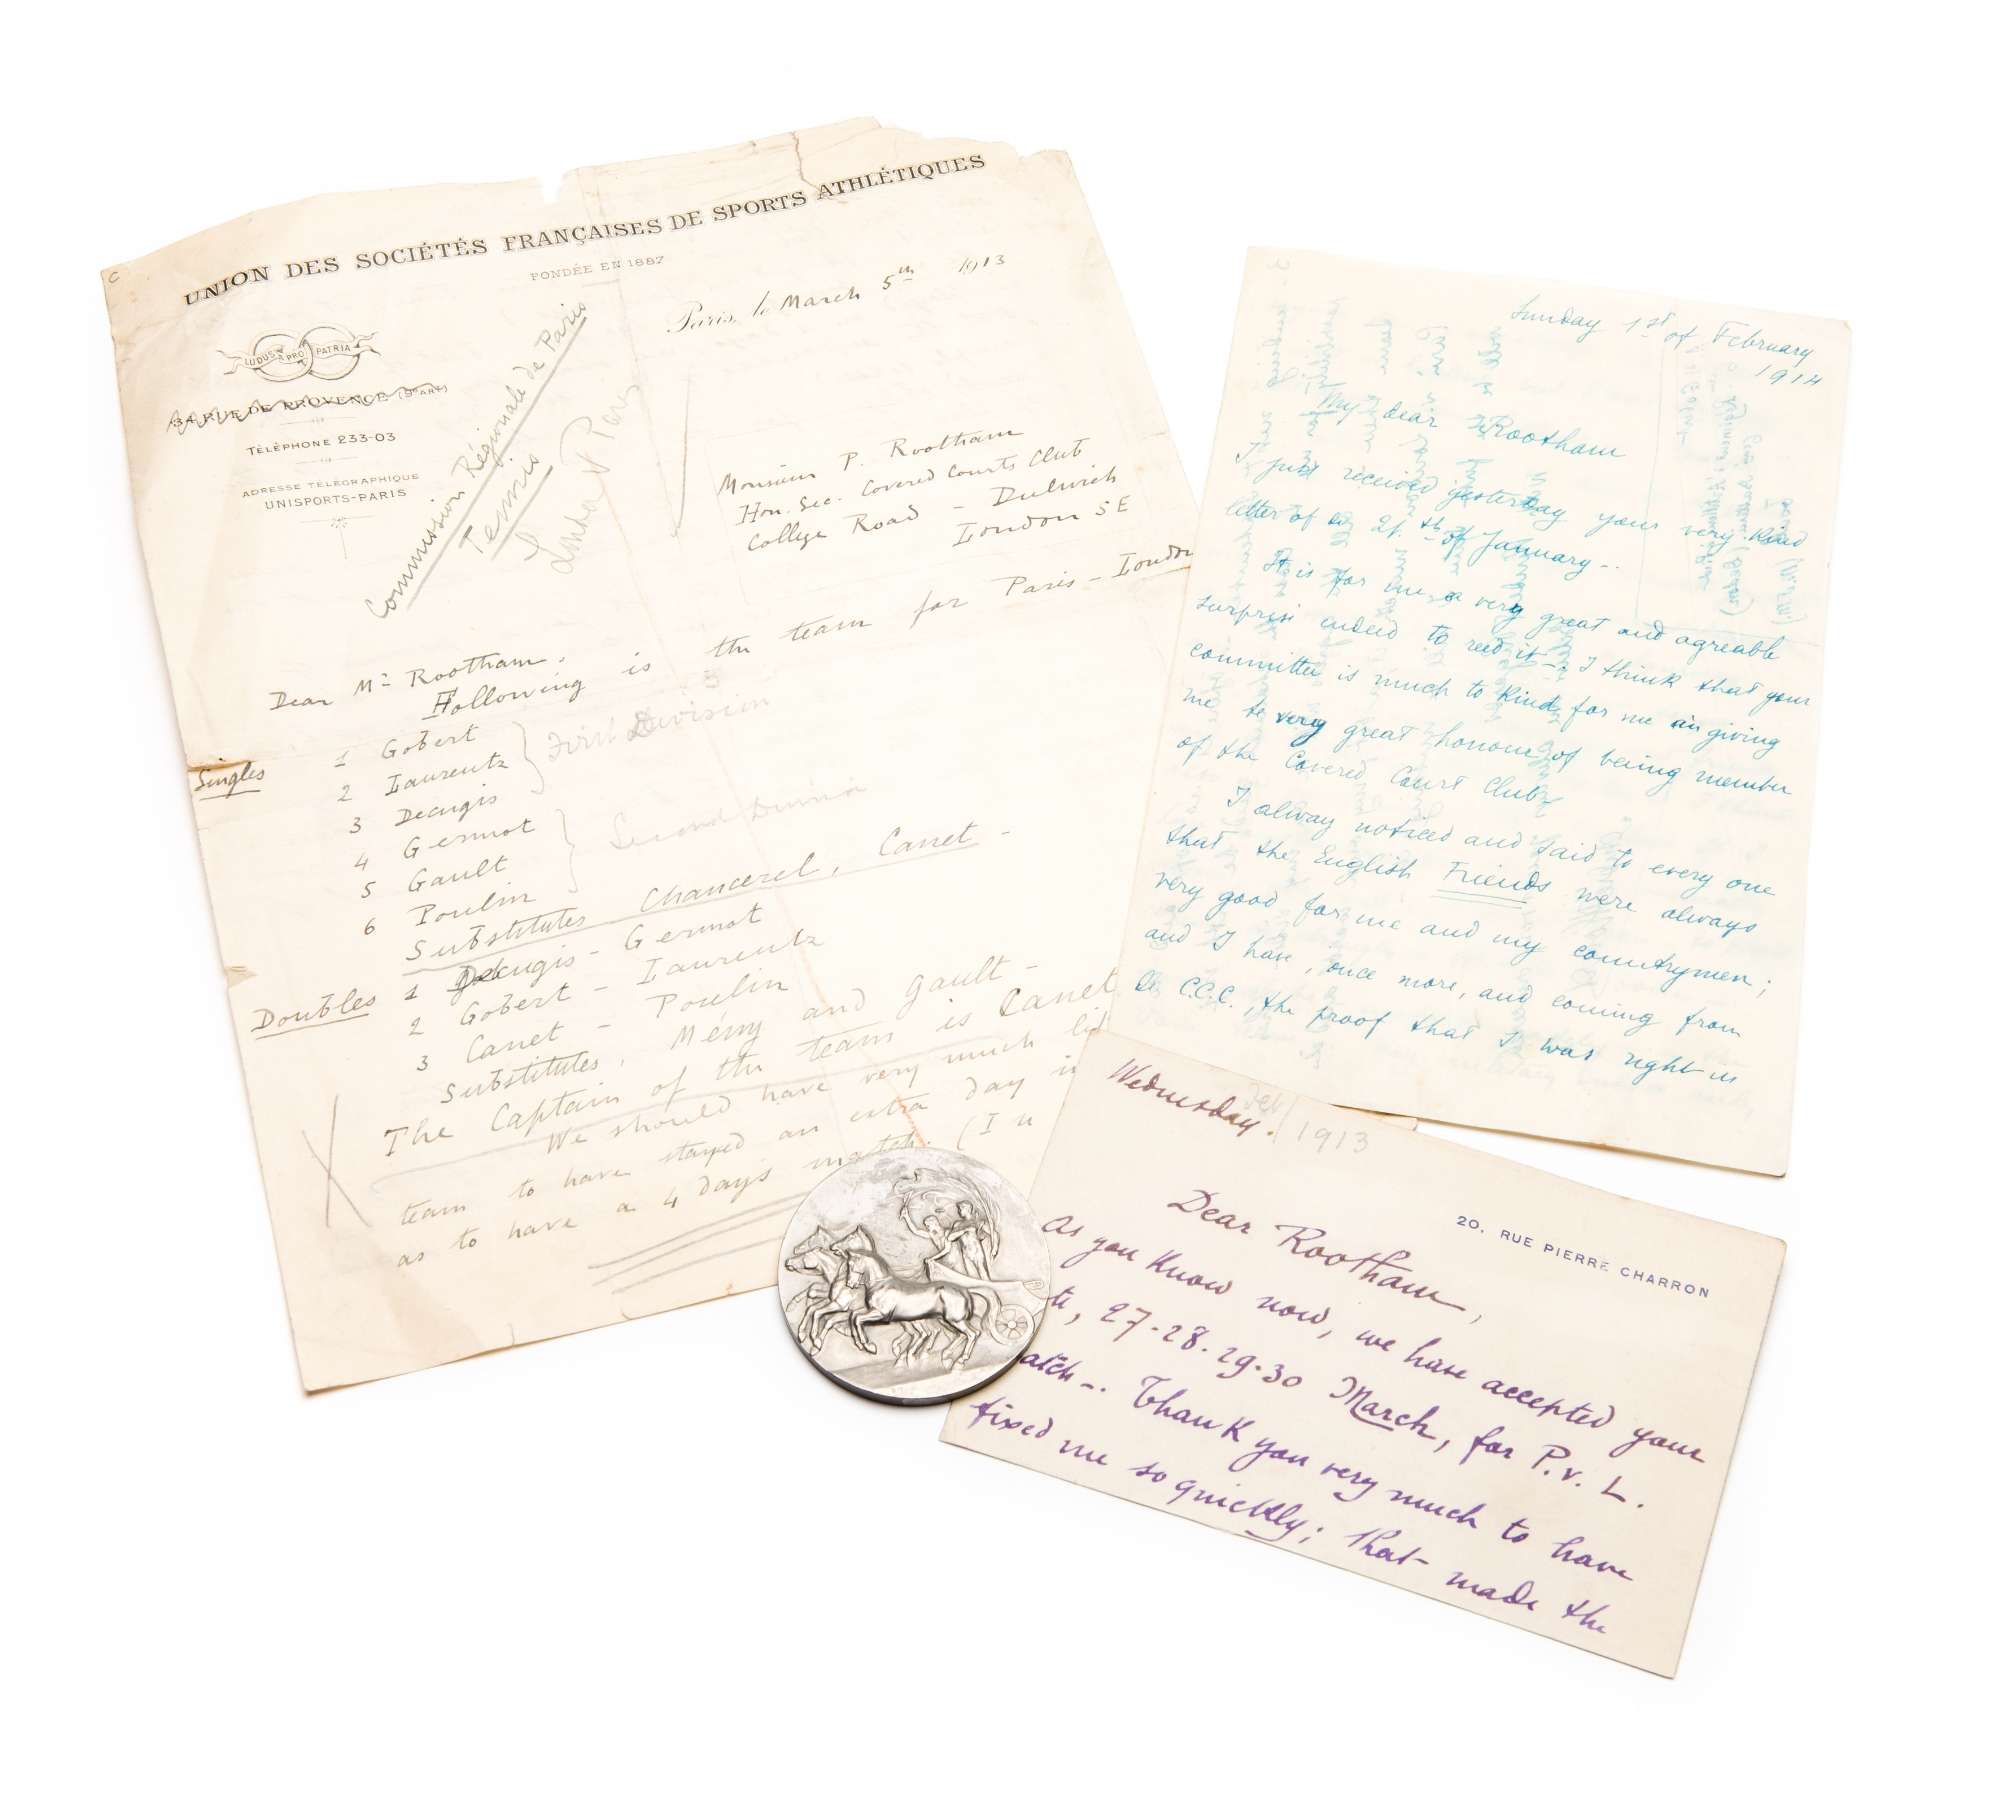 UNION DES SOCIÉTÉS FRANÇAISES DE SPORTS ATHLÉTIQUES
FONDÉE EN 1887
Paris, le March 5th 1913
LUDUS PRO PATRIA
34 RUE DE PROVENCE (9e ARRt)
TÉLÉPHONE 233-03
ADRESSE TÉLÉGRAPHIQUE
UNISPORTS-PARIS
Commission Régionale de Paris
Tennis
Monsieur P. Rootham
Hon. Sec. Covered Courts Club
College Road - Dulwich
London SE
Dear Mr Rootham,
Following is the team for Paris - London
Singles
1 Gobert
2 Laurentz
3 Decugis
First Division
4 Germot
5 Gault
6 Poulin
Second
Substitutes Chancerel, Canet -
Doubles
1 Decugis - Germot
2 Gobert - Laurentz
3 Canet - Poulin
Substitutes, Mény and Gault -
The Captain of the team is Canet
We should have very much
team to have stayed an extra day
as to have a 4 days match. (I
Sunday 1st of February
1914
My dear Rootham
I just received yesterday your very kind
letter of 21.th of January -.
It is for me, a very great and agreable
surprise indeed to reed it -. I think that your
committee is much to kind for me in giving
me te very great honour of being member
of the Covered Court Club
I alway noticed and said to every one
that the English Friends were always
very good for me and my countrymen;
and I have, once more, and coming from
te C.C.C., the proof that I was right in
Wednesday. Feb 1913
20, RUE PIERRE CHARRON
Dear Rootham,
As you know now, we have accepted your
27-28-29-30 March, for P.v. L.
atch -. Thank you very much to have
fixed me so quickly; that made the